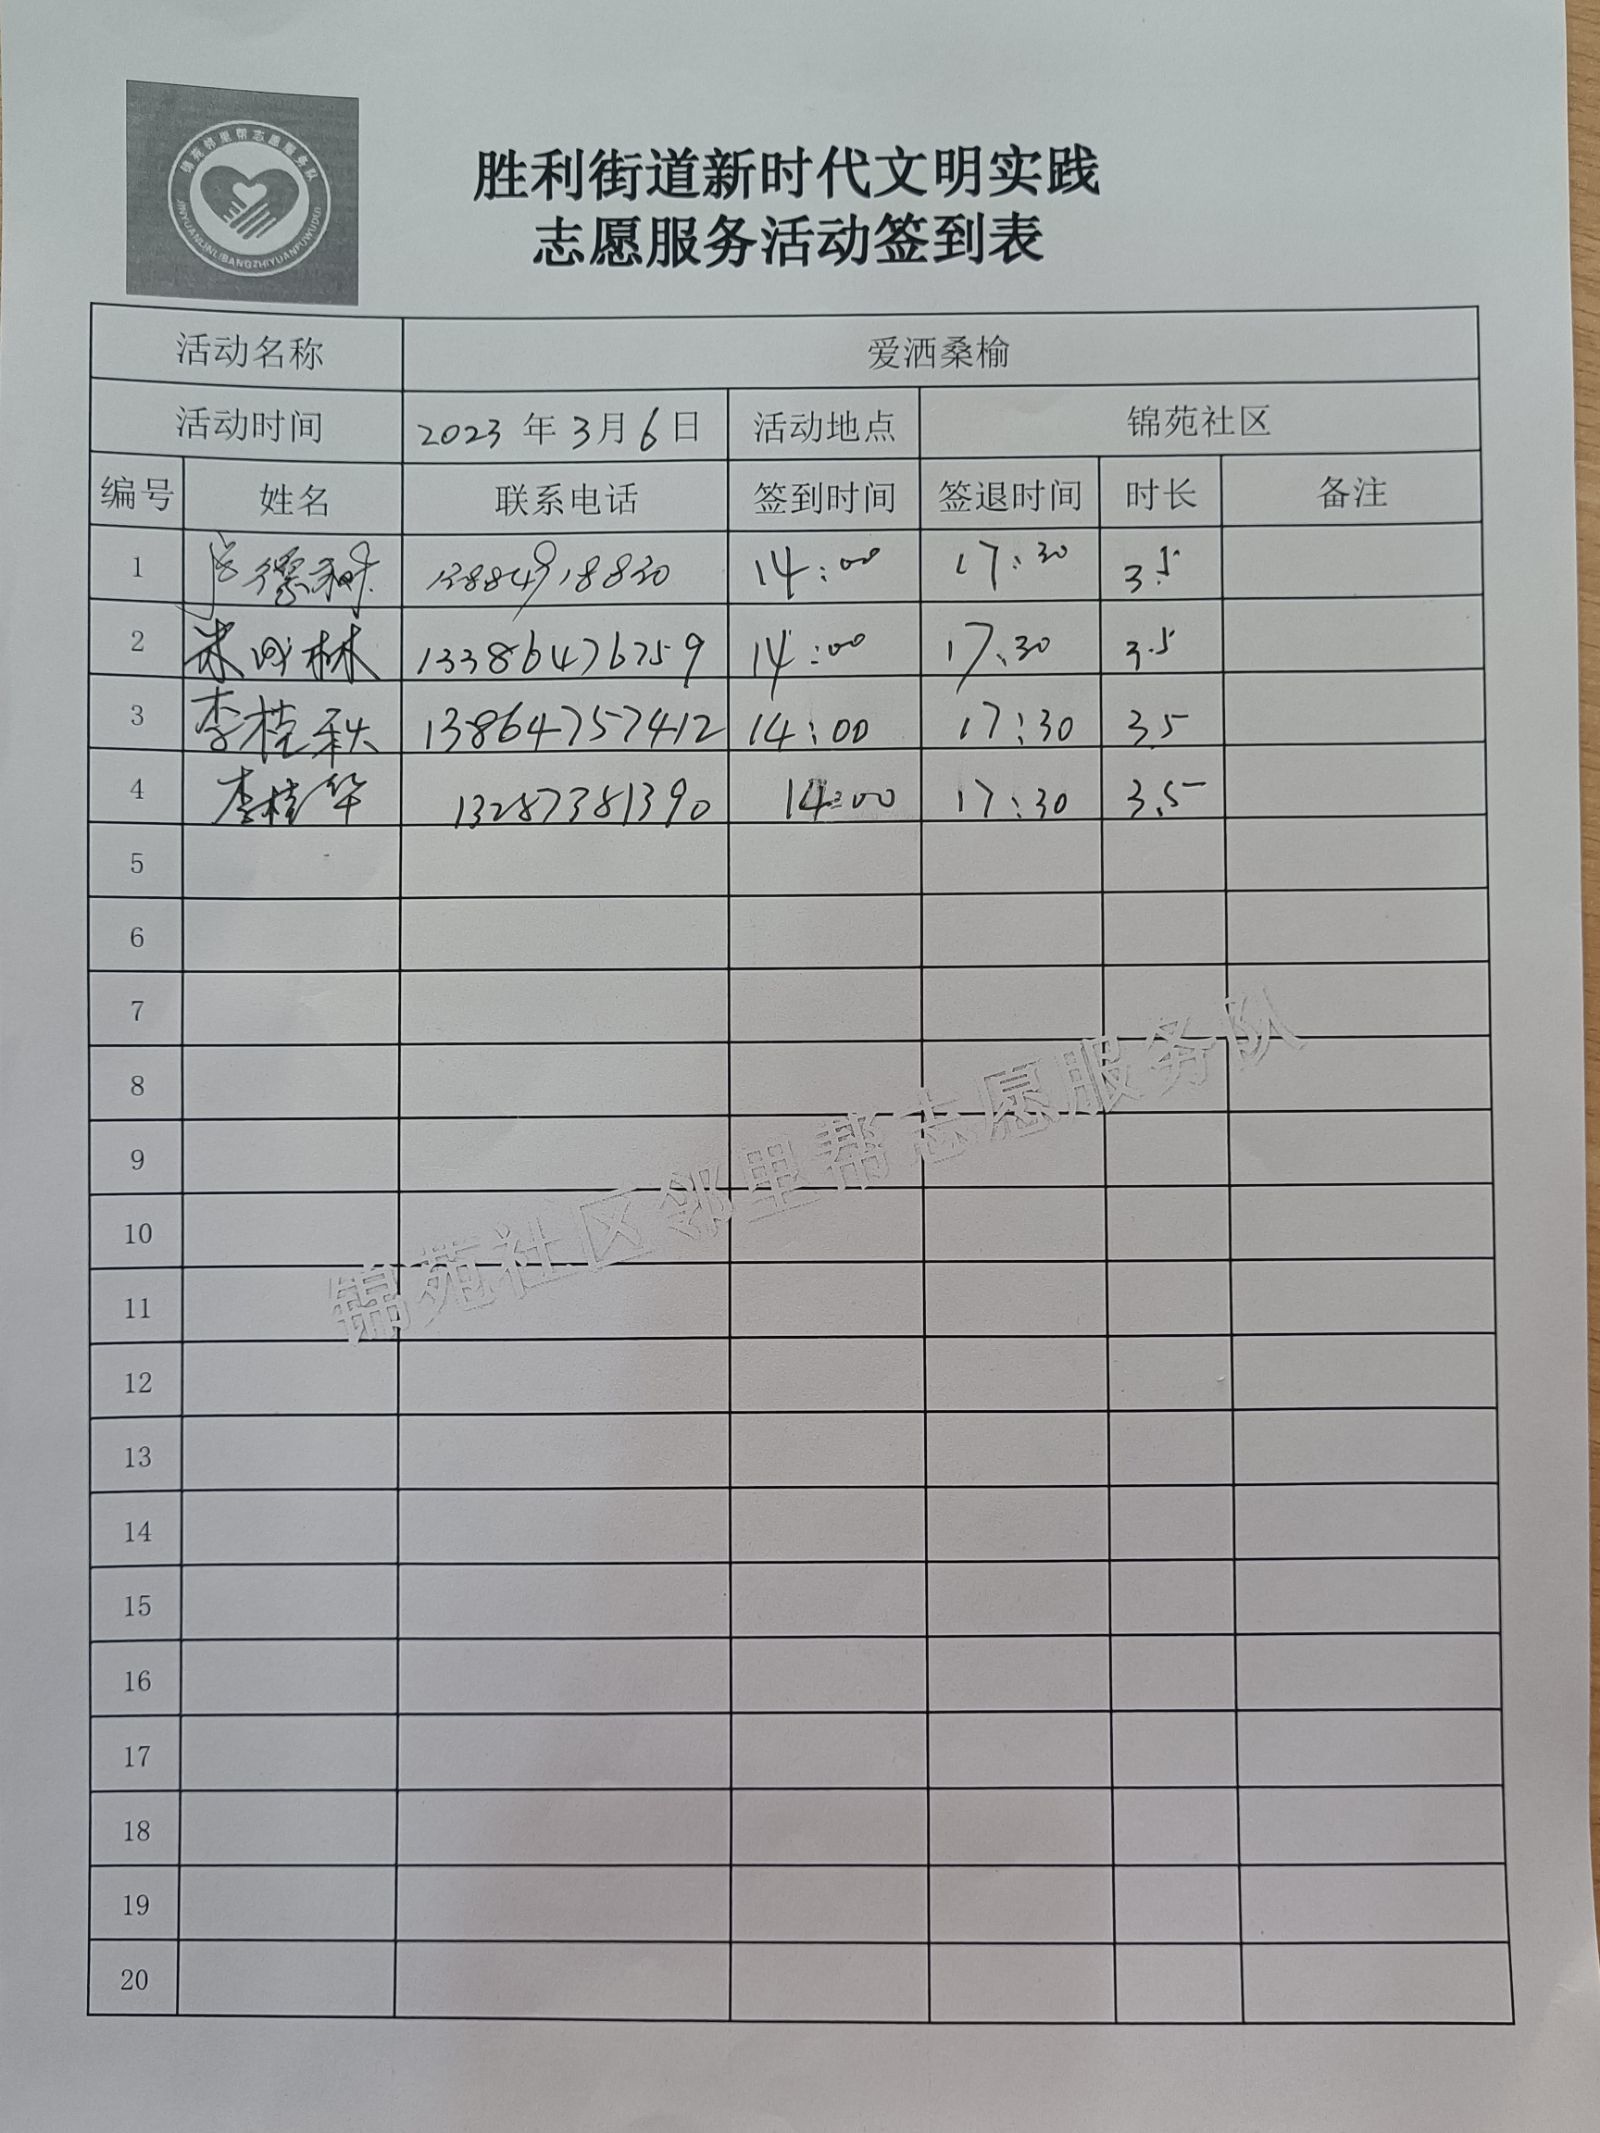 锦苑邻里帮志愿服务队
JINYUANLINLIBANGZHIYUANFUWUDUI
胜利街道新时代文明实践
志愿服务活动签到表
活动名称 爱洒桑榆
活动时间 2023年3月6日 活动地点 锦苑社区
编号 姓名 联系电话 签到时间 签退时间 时长 备注
1 13884918830 14:00 17:30 3.5
2 朱成林 13386476759 14:00 17:30 3.5
3 李桂秋 13864757412 14:00 17:30 3.5
4 李桂华 13287381390 14:00 17:30 3.5
5
6
7
8
9
10
11
12
13
14
15
16
17
18
19
20
锦苑社区邻里帮志愿服务队